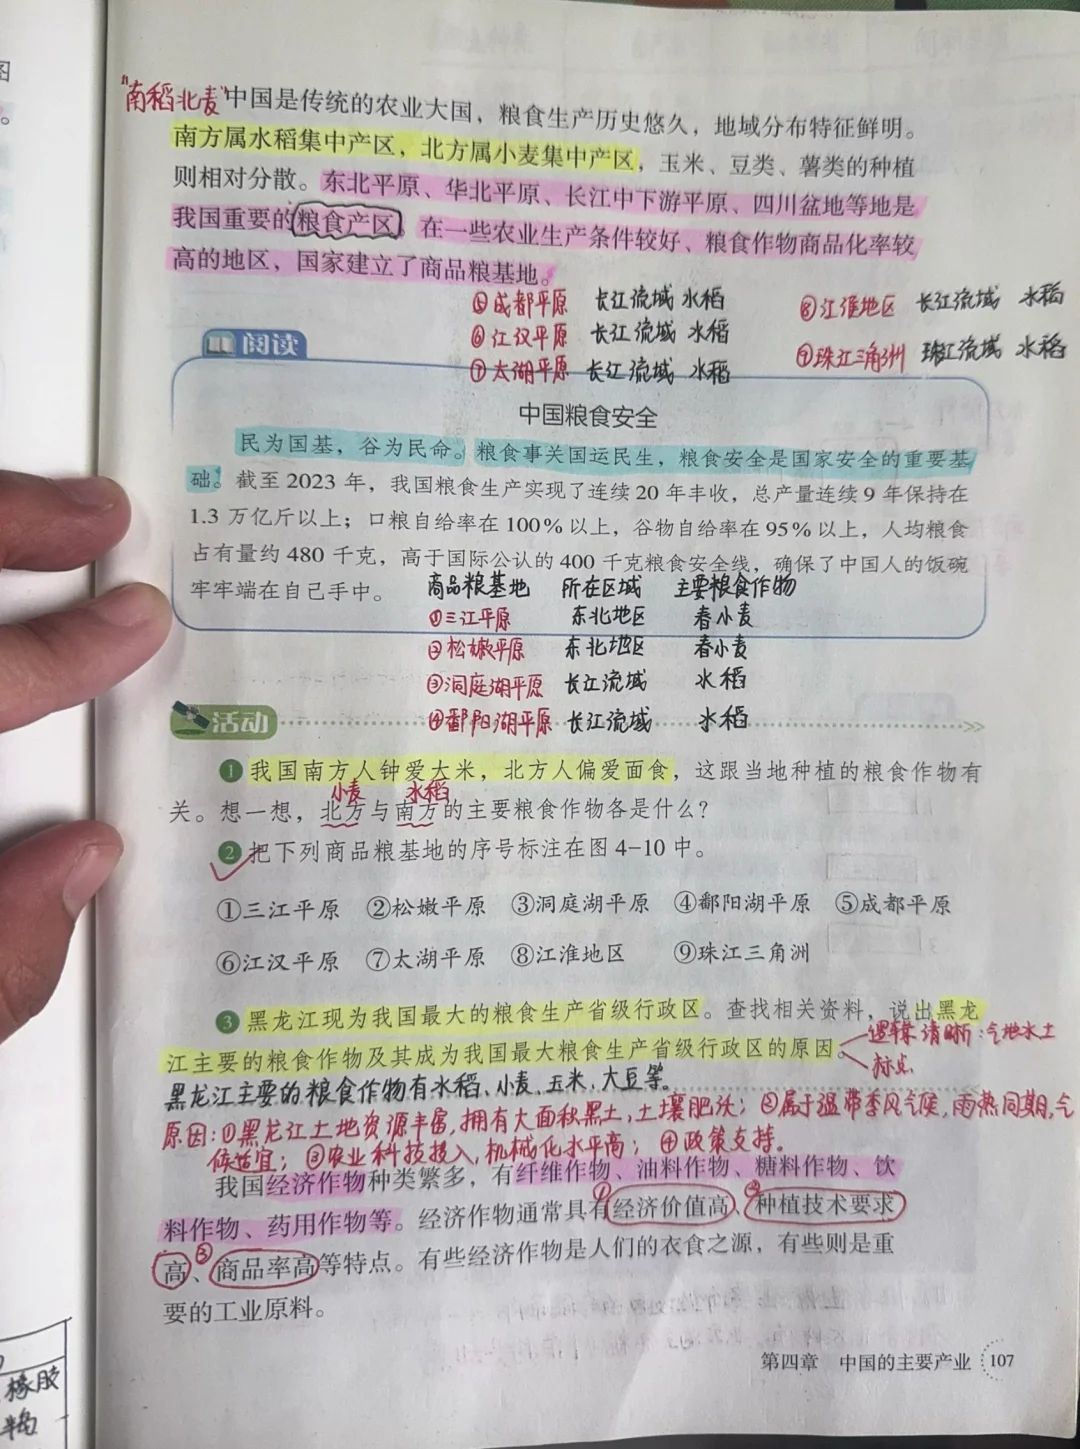 图
。
"南稻北麦"中国是传统的农业大国，粮食生产历史悠久，地域分布特征鲜明。
南方属水稻集中产区，北方属小麦集中产区，玉米、豆类、薯类的种植
则相对分散。东北平原、华北平原、长江中下游平原、四川盆地等地是
我国重要的粮食产区。在一些农业生产条件较好、粮食作物商品化率较
高的地区，国家建立了商品粮基地。
⑤成都平原 长江流域 水稻
⑥江汉平原 长江流域 水稻
⑦太湖平原 长江流域 水稻
⑧江淮地区 长江流域 水稻
⑨珠江三角洲 珠江流域 水稻
阅读
中国粮食安全
民为国基，谷为民命。粮食事关国运民生，粮食安全是国家安全的重要基
础。截至2023年，我国粮食生产实现了连续20年丰收，总产量连续9年保持在
1.3万亿斤以上；口粮自给率在100%以上，谷物自给率在95%以上，人均粮食
占有量约480千克，高于国际公认的400千克粮食安全线，确保了中国人的饭碗
牢牢端在自己手中。
商品粮基地 所在区域 主要粮食作物
①三江平原 东北地区 春小麦
②松嫩平原 东北地区 春小麦
③洞庭湖平原 长江流域 水稻
④鄱阳湖平原 长江流域 水稻
活动
1 我国南方人钟爱大米，北方人偏爱面食，这跟当地种植的粮食作物有
小麦 水稻
关。想一想，北方与南方的主要粮食作物各是什么？
2 把下列商品粮基地的序号标注在图4-10中。
①三江平原 ②松嫩平原 ③洞庭湖平原 ④鄱阳湖平原 ⑤成都平原
⑥江汉平原 ⑦太湖平原 ⑧江淮地区 ⑨珠江三角洲
3 黑龙江现为我国最大的粮食生产省级行政区。查找相关资料，说出黑龙
江主要的粮食作物及其成为我国最大粮食生产省级行政区的原因。
逻辑清晰：气地水土
标点
黑龙江主要的粮食作物有水稻、小麦、玉米、大豆等。
原因：①黑龙江土地资源丰富，拥有大面积黑土，土壤肥沃；②属于温带季风气候，雨热同期，气
候适宜；③农业科技投入，机械化水平高；④政策支持。
我国经济作物种类繁多，有纤维作物、油料作物、糖料作物、饮
料作物、药用作物等。经济作物通常具有①经济价值高、②种植技术要求
高、③商品率高等特点。有些经济作物是人们的衣食之源，有些则是重
要的工业原料。
橡胶
第四章 中国的主要产业 107